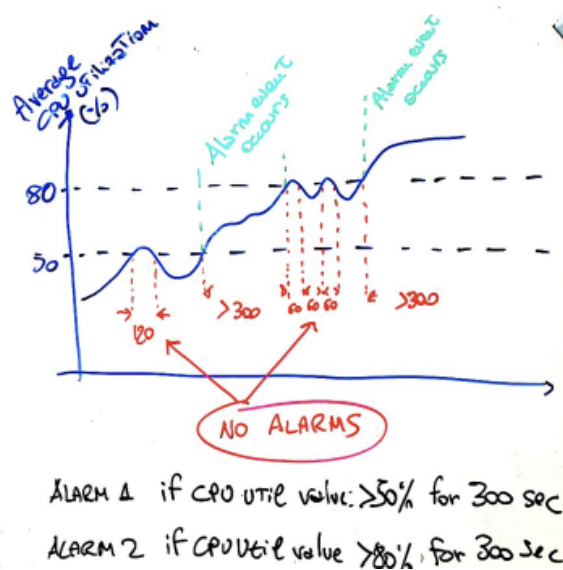 Average
CPU utilization
(%)
Alarm event
occurs
Alarm event
occurs
80
50
120
>300
60 60 60
>300
NO ALARMS
ALARM 1 if CPU UTIL value: >50% for 300 sec
ALARM 2 if CPU Util value >80% for 300 sec